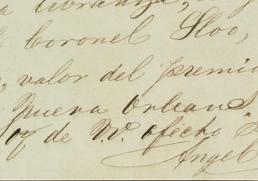 a libranza,
Coronel Sloo,
valor del premio
Nueva Orleans
de V. afecho
Angel